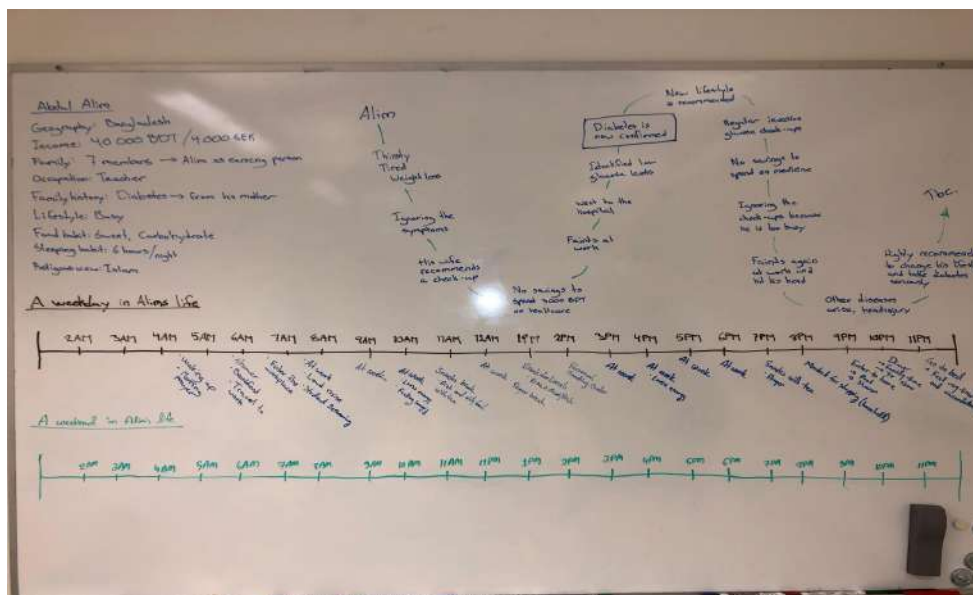 Abdul Alim
Geography: Bangladesh
Income: 40 000 BDT / 4 000 SEK
Family: 7 members → Alim as earning person
Occupation: Teacher
Family history: Diabetes → from his mother
Lifestyle: Busy
Food habit: Sweet, Carbohydrate
Sleeping habit: 6 hours/night
Religious view: Islam
Alim
Thirsty
Tired
Weight loss
Ignoring the
symptoms
His wife
recommends
a check-up
No savings to
spend BDT
on healthcare
Faints at
work
went to the
hospital
Identified
glucose levels
Diabetes is
now confirmed
New lifestyle
is recommended
Regular invasive
glucose check-ups
No savings to
spend on medicine
Ignoring the
check-ups because
he is too busy
Faints again
at work and
hit his head
Other diseases
arise, head
Highly recommended
to change his
and take diabetes
seriously
Tbc.
A weekday in Alims life
2AM 3AM 4AM 5AM 6AM 7AM 8AM 9AM 10AM 11AM 12AM 1PM 2PM 3PM 4PM 5PM 6PM 7PM 8PM 9PM 10PM 11PM
Waking up
Prayer
Shower
Breakfast
Travel to
work
Enter the
workplace
At work
Loud noise
Student screaming
At work
At work
Less energy
At work
Prayer
At work
At work
Less energy
At work
At work
Snacks with tea
Prayer
Market for shopping (household)
Dinner
Go to bed
A weekend in Alim life
2AM 3AM 4AM 5AM 6AM 7AM 8AM 9AM 10AM 11AM 12AM 1PM 2PM 3PM 4PM 5PM 6PM 7PM 8PM 9PM 10PM 11PM